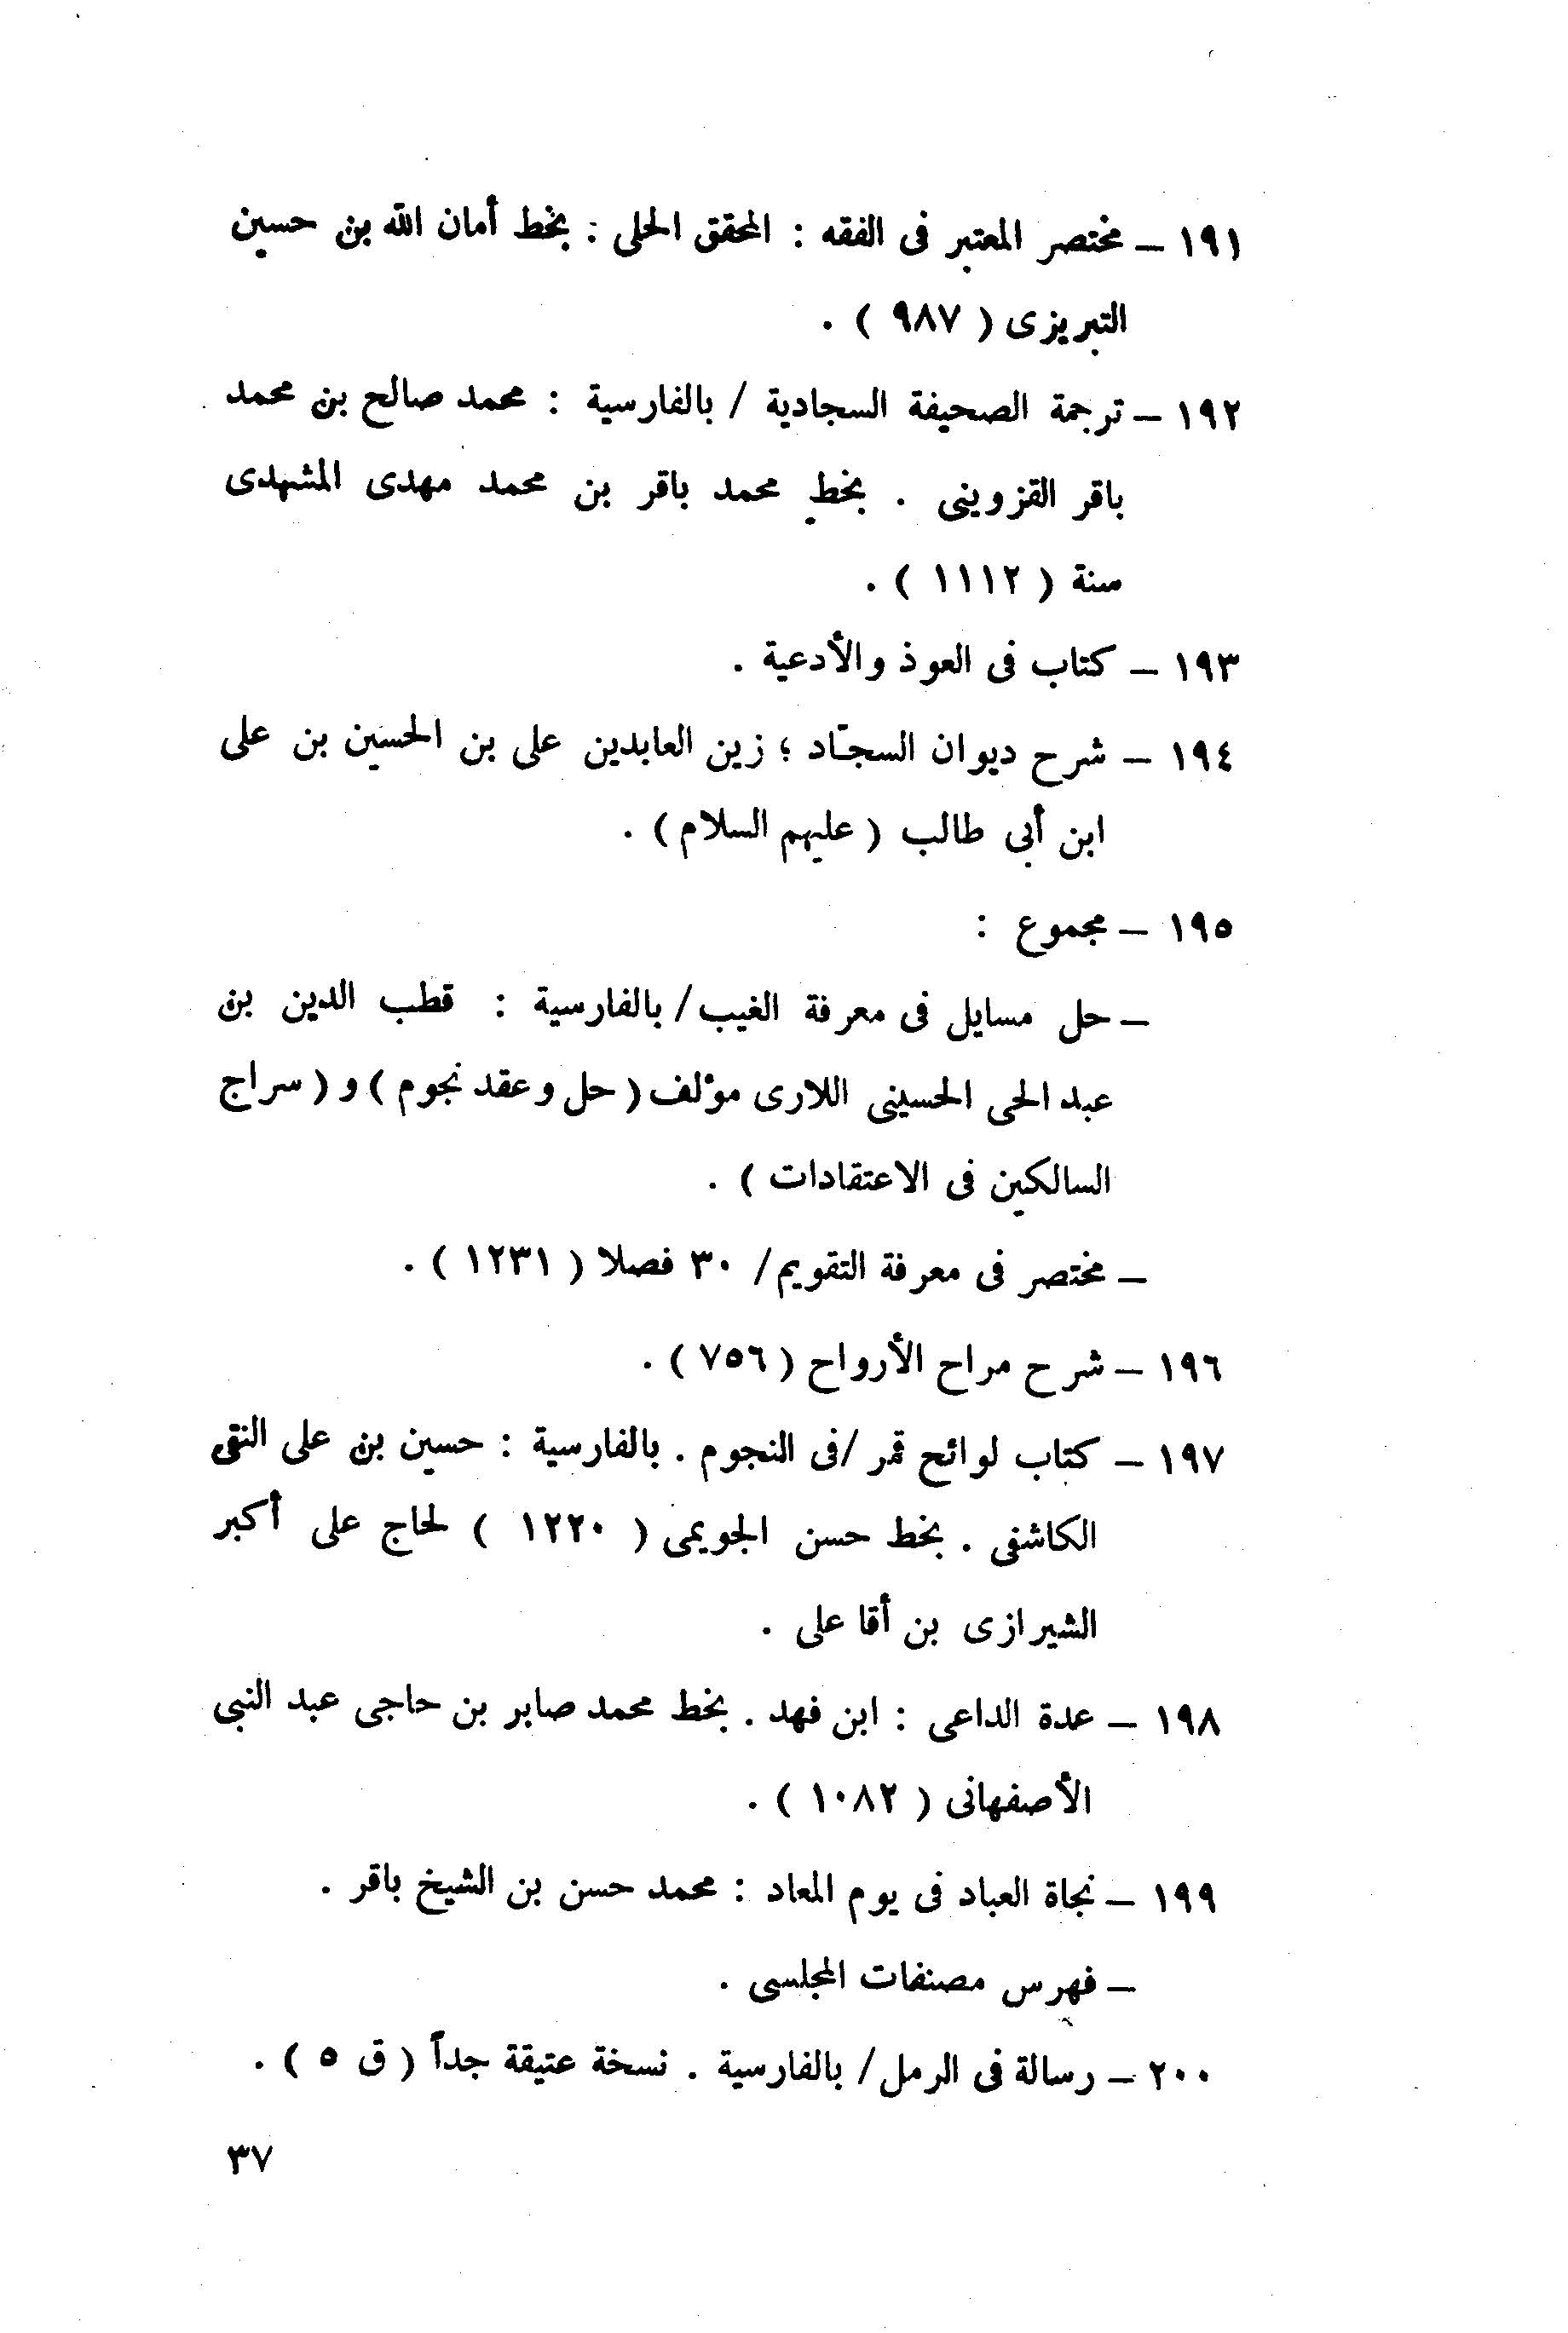 ١٩١ – مختصر المعتبر فى الفقه : المحقق الحلى : بخط أمان الله بن حسين
التبريزى ( ٩٨٧ ) .
١٩٢ – ترجمة الصحيفة السجادية / بالفارسية : محمد صالح بن محمد
باقر القزوينى . بخط محمد باقر بن محمد مهدى المشهدى
سنة ( ١١١٢ ) .
١٩٣ – كتاب فى العوذ والأدعية .
١٩٤ – شرح ديوان السجّاد ؛ زين العابدين على بن الحسين بن على
ابن أبى طالب ( عليهم السلام ) .
١٩٥ – مجموع :
– حل مسايل فى معرفة الغيب / بالفارسية : قطب الدين بن
عبد الحى الحسينى اللارى مؤلف ( حل وعقد نجوم ) و ( سراج
السالكين فى الاعتقادات ) .
– مختصر فى معرفة التقويم / ٣٠ فصلا ( ١٢٣١ ) .
١٩٦ – شرح مراح الأرواح ( ٧٥٦ ) .
١٩٧ – كتاب لوائح قمر / فى النجوم . بالفارسية : حسين بن على النقى
الكاشفى . بخط حسن الجويمى ( ١٢٢٠ ) لحاج على أكبر
الشيرازى بن أقا على .
١٩٨ – عدة الداعى : ابن فهد . بخط محمد صابر بن حاجى عبد النبى
الأصفهانى ( ١٠٨٢ ) .
١٩٩ – نجاة العباد فى يوم المعاد : محمد حسن بن الشيخ باقر .
– فهرس مصنفات المجلسى .
٢٠٠ – رسالة فى الرمل / بالفارسية . نسخة عتيقة جداً ( ق ٥ ) .
٣٧